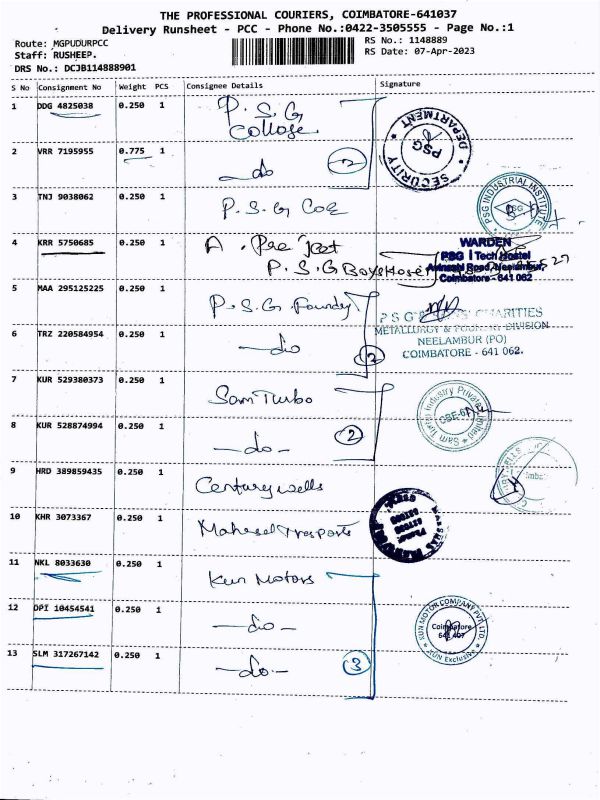 THE PROFESSIONAL COURIERS, COIMBATORE-641037
Delivery Runsheet - PCC - Phone No.:0422-3505555 - Page No.:1
Route: MGPUDURPCC
RS No.: 1148889
Staff: RUSHEEP.
RS Date: 07-Apr-2023
DRS No.: DCJB114888901
S No Consignment No Weight PCS Consignee Details Signature
1 DDG 4825038 0.250 1 P.S.G
College
SECURITY DEPARTMENT
PSG
2 VRR 7195955 0.775 1 -do 2
3 TNJ 9038062 0.250 1 P.S.G COE
PSG INDUSTRIAL INSTITUTE
PSG
4 KRR 5750685 0.250 1 A.
P.S.G Boys Hostel
WARDEN
PSG i Tech Hostel
Avinashi Road, Neelambur,
Coimbatore - 641 062
5 MAA 295125225 0.250 1 P.S.G. Foundry
P S G & SONS' CHARITIES
METALLURGY & FOUNDRY DIVISION
NEELAMBUR (PO)
COIMBATORE - 641 062.
6 TRZ 220584954 0.250 1 -do 2
7 KUR 529380373 0.250 1 Sam Turbo
Sam Turbo Industry Private Limited
8 KUR 528874994 0.250 1 -do- 2
9 HRD 389859435 0.250 1 Century wells
10 KHR 3073367 0.250 1 Trasports
11 NKL 8033630 0.250 1 Kun Motors
12 DPI 10454541 0.250 1 -do-
KUN MOTOR COMPANY PVT. LTD.
Coimbatore
641 407
KUN Exclusive
13 SLM 317267142 0.250 1 -do- 3